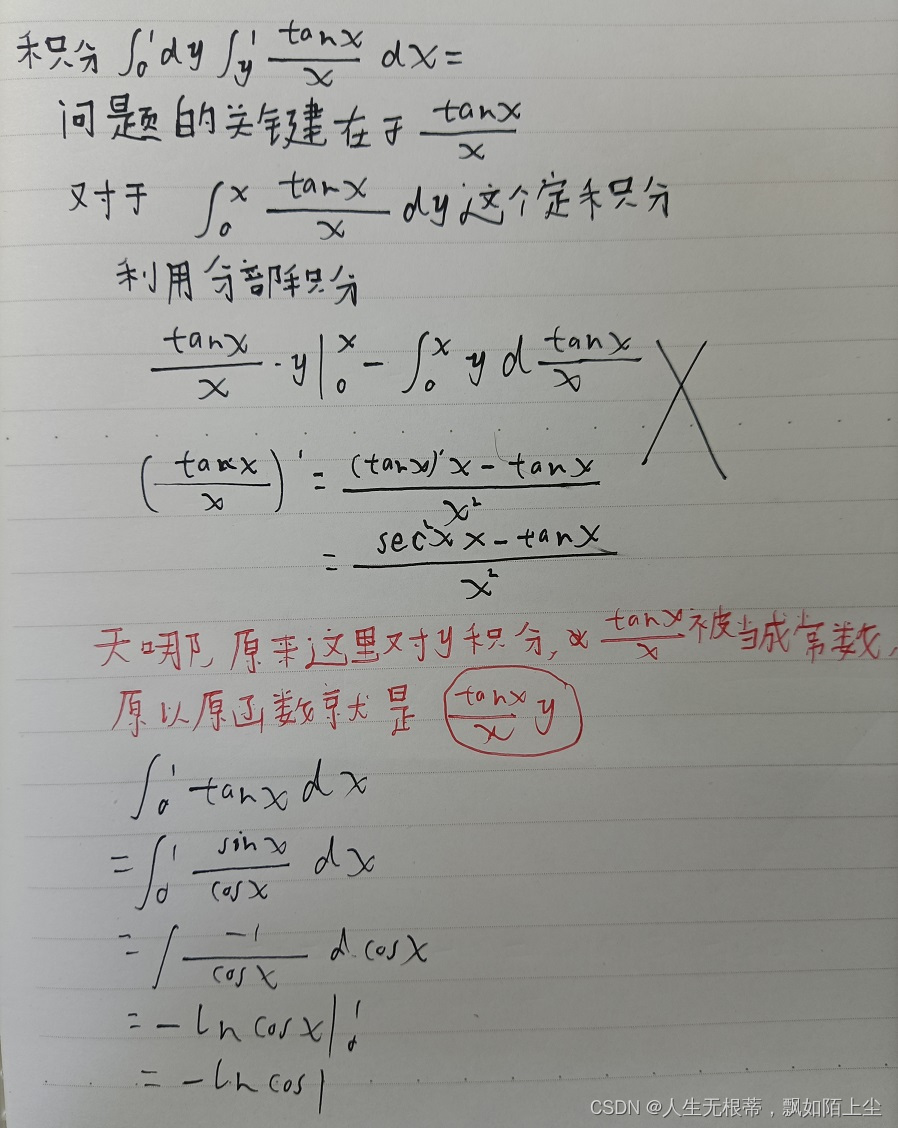 积分 ∫₀¹ dy ∫_y¹ tanx/x dx =
问题的关键在于 tanx/x
对于 ∫₀ˣ tanx/x dy 这个定积分
利用分部积分
tanx/x · y|₀ˣ - ∫₀ˣ y d tanx/x
(tanx/x)' = ((tanx)'x - tanx)/x²
= (sec²x x - tanx)/x²
天哪,原来这里对y积分, tanx/x 被当成常数,
原以原函数就是 tanx/x y
∫₀¹ tanx dx
= ∫₀¹ sinx/cosx dx
= ∫ -1/cosx d cosx
= -ln cosx|₀¹
= -ln cos1
CSDN @人生无根蒂,飘如陌上尘